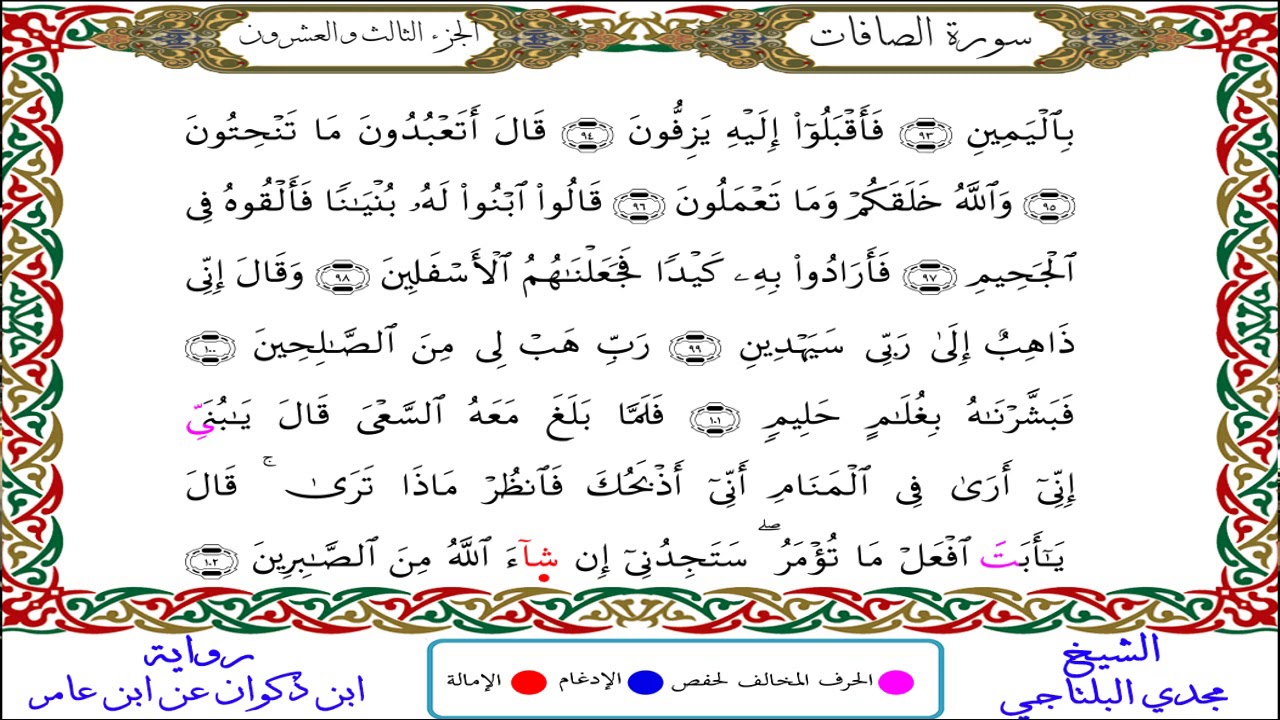 سورة الصافات
الجزء الثالث والعشرون
بِٱلْيَمِينِ ٩٣ فَأَقْبَلُوٓا۟ إِلَيْهِ يَزِفُّونَ ٩٤ قَالَ أَتَعْبُدُونَ مَا تَنْحِتُونَ
٩٥ وَٱللَّهُ خَلَقَكُمْ وَمَا تَعْمَلُونَ ٩٦ قَالُوا۟ ٱبْنُوا۟ لَهُۥ بُنْيَـٰنًا فَأَلْقُوهُ فِى
ٱلْجَحِيمِ ٩٧ فَأَرَادُوا۟ بِهِۦ كَيْدًا فَجَعَلْنَـٰهُمُ ٱلْأَسْفَلِينَ ٩٨ وَقَالَ إِنِّى
ذَاهِبٌ إِلَىٰ رَبِّى سَيَهْدِينِ ٩٩ رَبِّ هَبْ لِى مِنَ ٱلصَّـٰلِحِينَ ١٠٠
فَبَشَّرْنَـٰهُ بِغُلَـٰمٍ حَلِيمٍ ١٠١ فَلَمَّا بَلَغَ مَعَهُ ٱلسَّعْىَ قَالَ يَـٰبُنَىِّ
إِنِّىٓ أَرَىٰ فِى ٱلْمَنَامِ أَنِّىٓ أَذْبَحُكَ فَٱنظُرْ مَاذَا تَرَىٰ ۚ قَالَ
يَـٰٓأَبَتَ ٱفْعَلْ مَا تُؤْمَرُ ۖ سَتَجِدُنِىٓ إِن شَآءَ ٱللَّهُ مِنَ ٱلصَّـٰبِرِينَ ١٠٢
الشيخ
مجدي البلتاجي
الحرف المخالف لحفص
الإدغام
الإمالة
رواية
ابن ذكوان عن ابن عامر